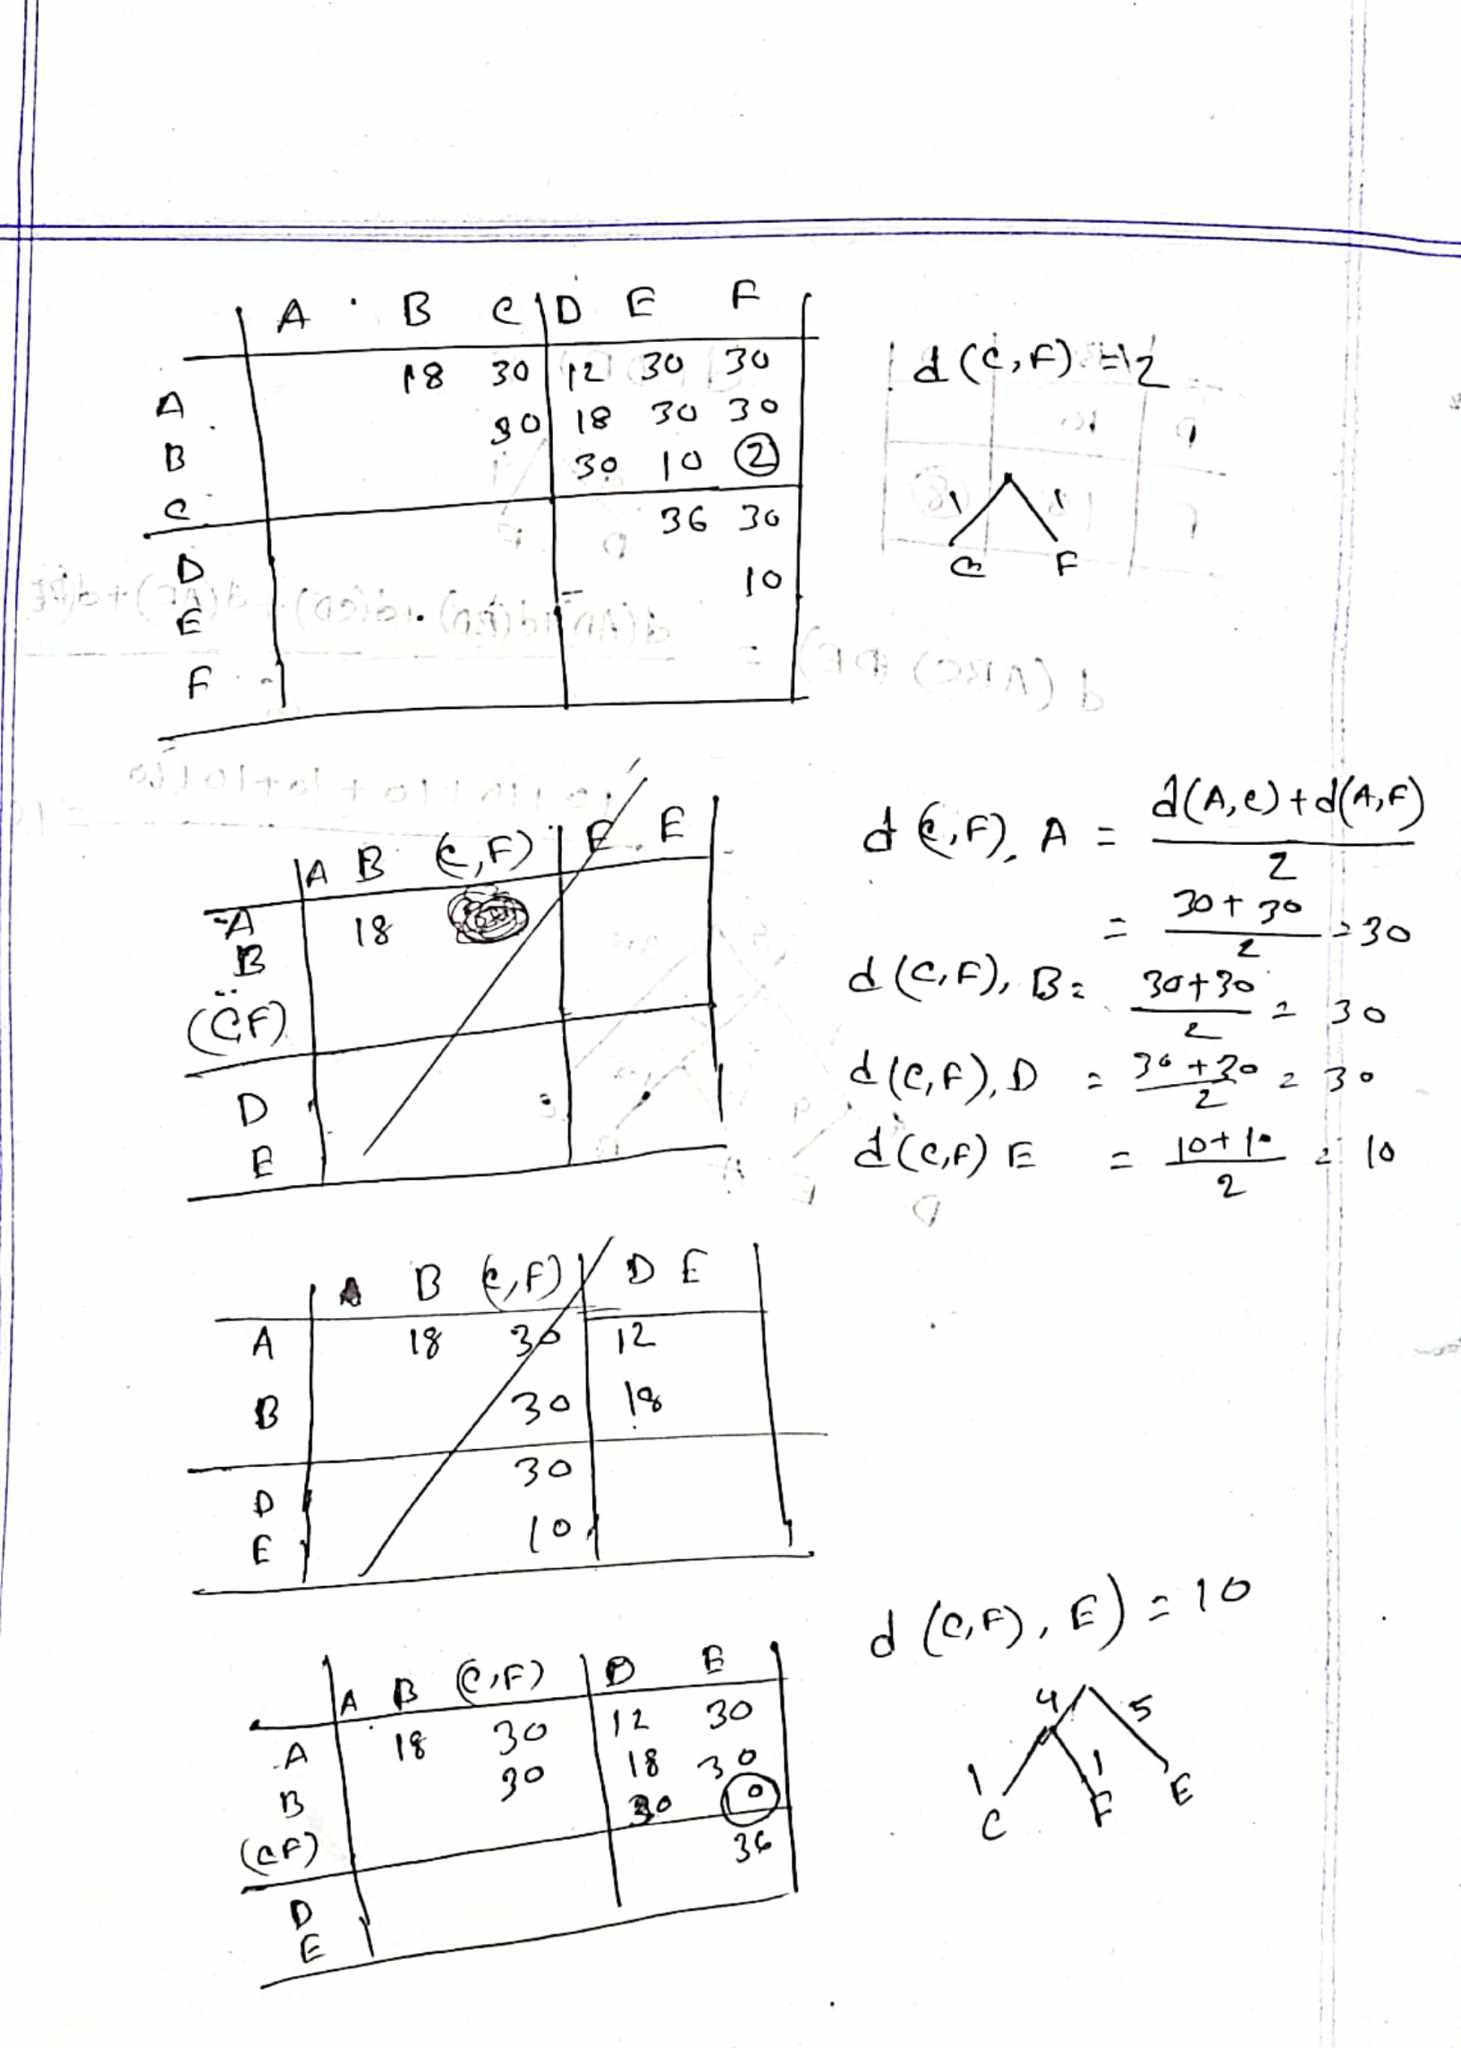 A B C D E F
A 18 30 12 30 30
B 30 18 30 30
C 30 10 2
D 36 30
E 10
F
d(C,F) = 2
1 1
C F
A B (C,F) E E
A 18
B
(CF)
D
E
d(C,F), A = d(A,C)+d(A,F) / 2
= 30+30 / 2 = 30
d(C,F), B = 30+30 / 2 = 30
d(C,F), D = 30+30 / 2 = 30
d(C,F) E = 10+10 / 2 = 10
A B (C,F) D E
A 18 30 12
B 30 18
D 30
E 10
A B (C,F) D E
A 18 30 12 30
B 30 18 30
(CF) 30 10
D 36
E
d(C,F), E) = 10
4 5
1 1
C F E